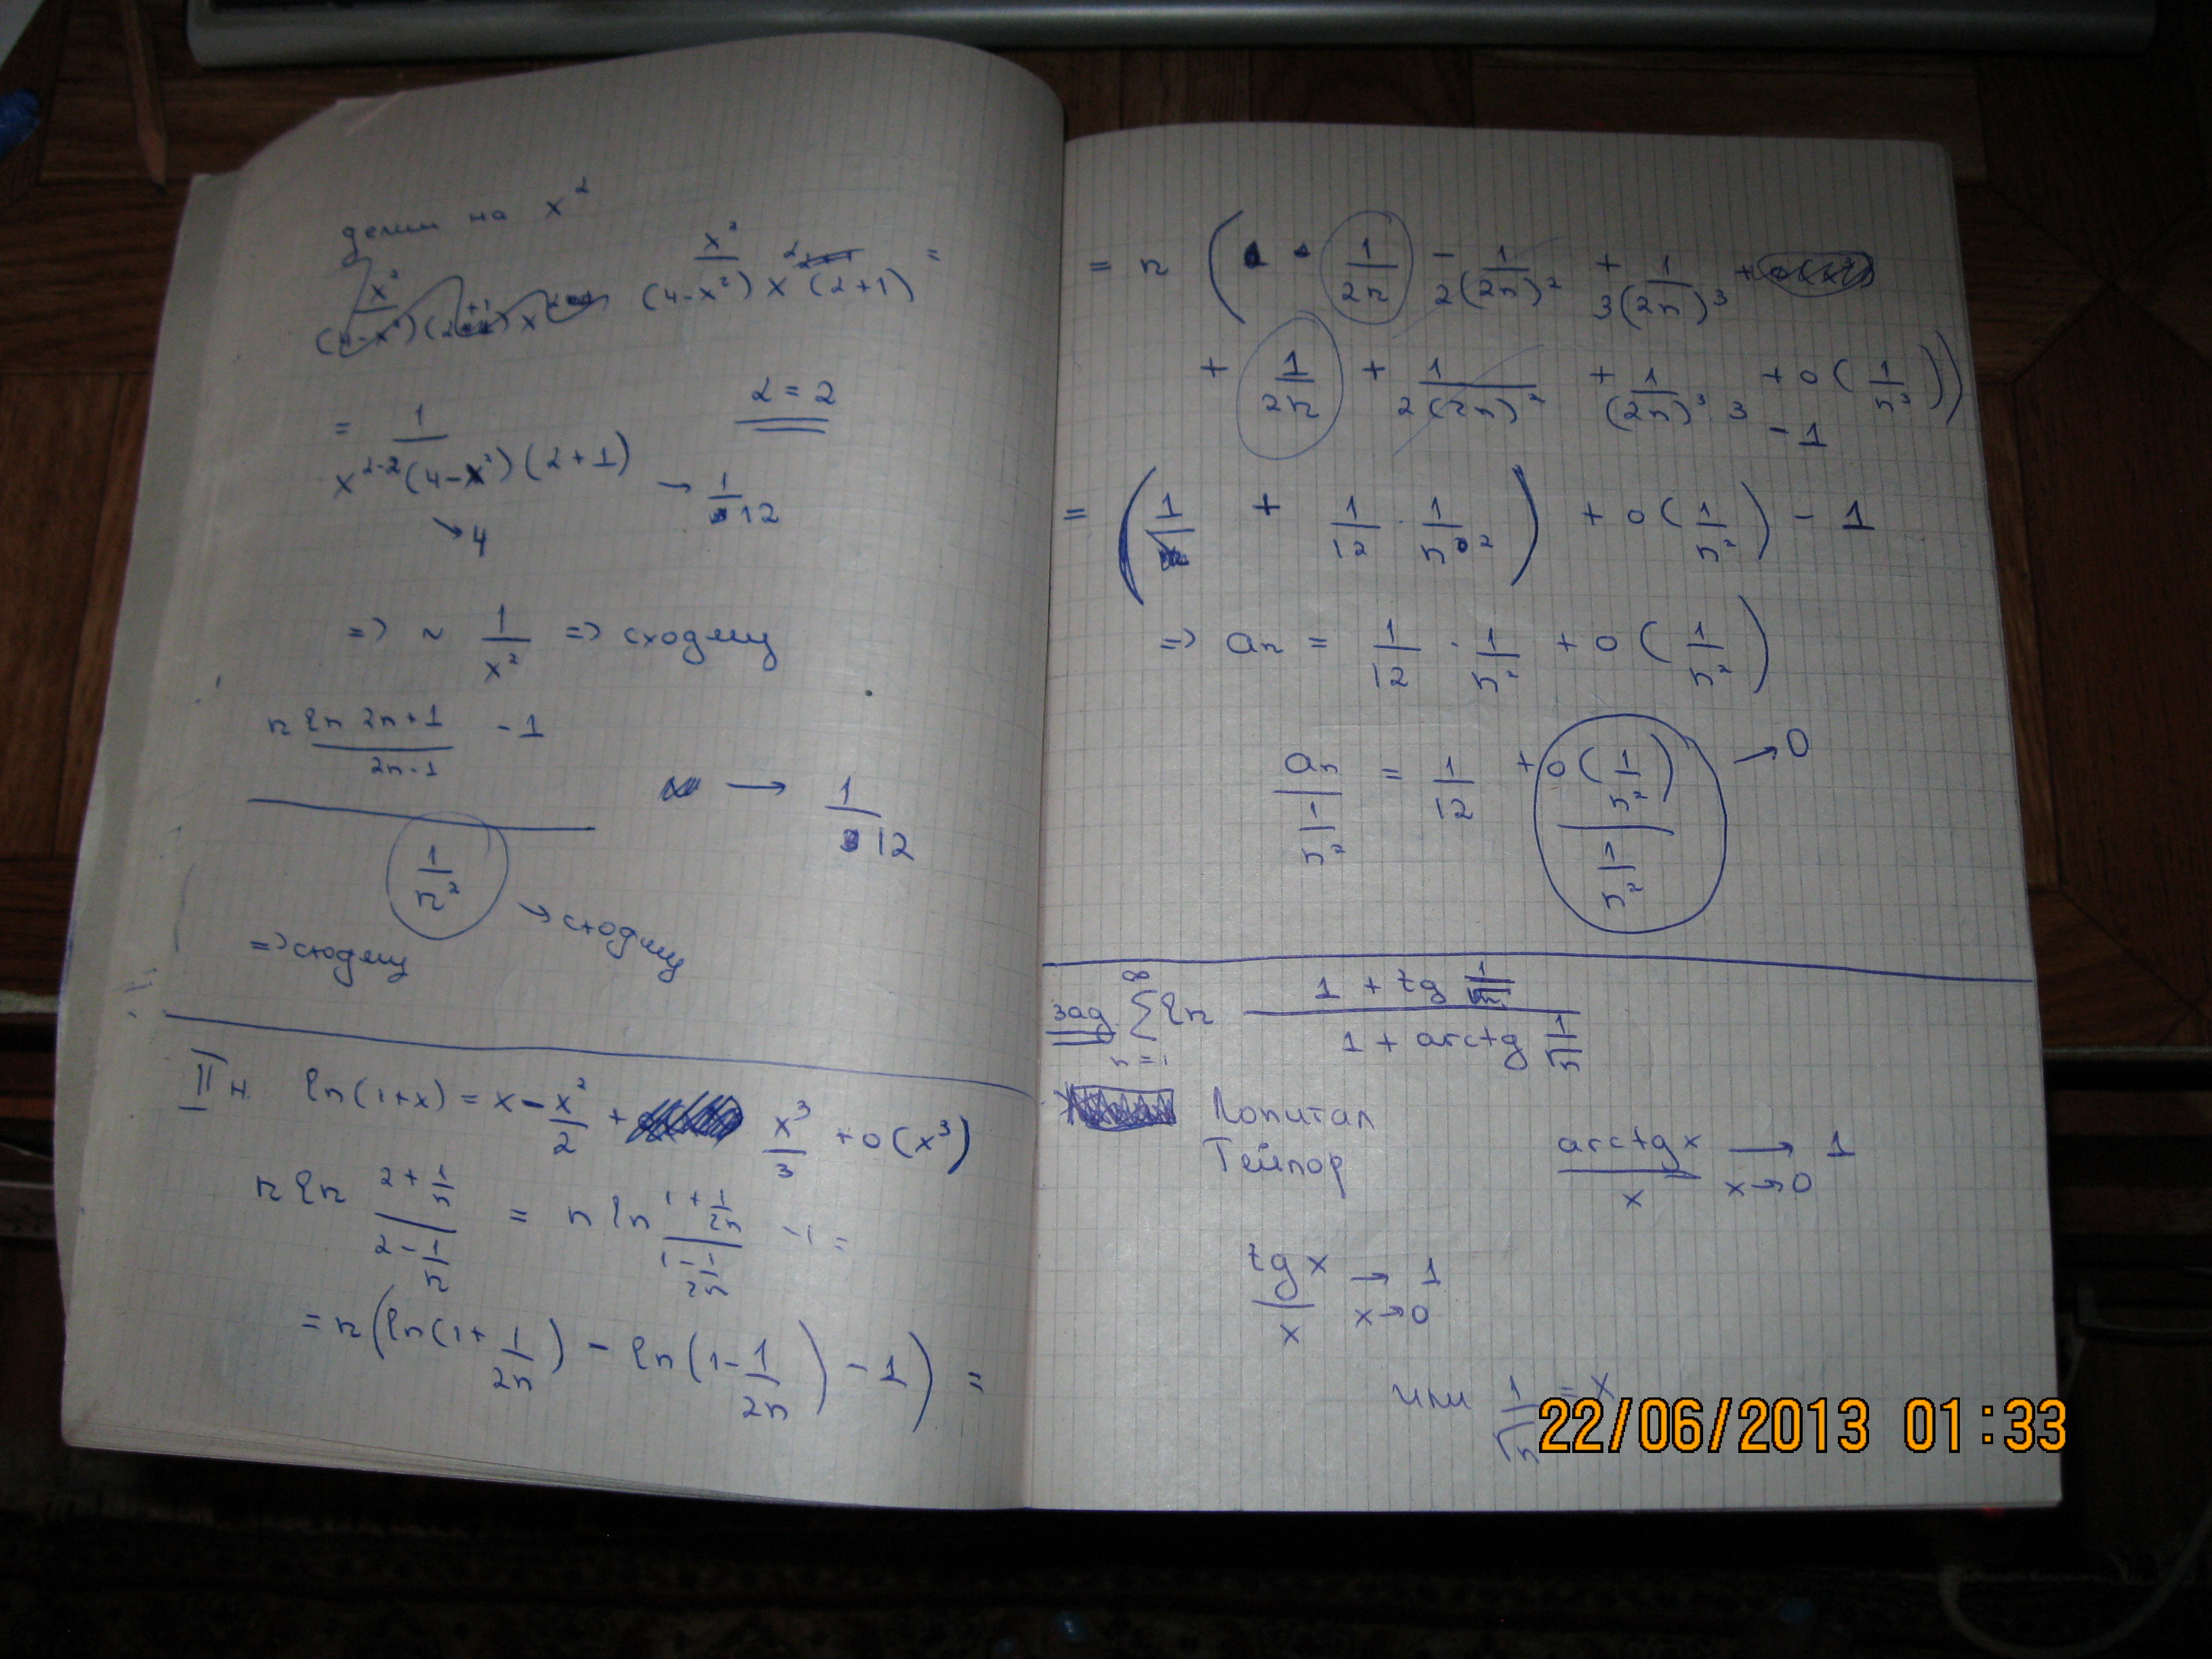 делим на x²
x² / ((4-x²) x^2 (2+1)) =
= 1 / (x^(2-2) (4-x²)(2+1)) → 1/12
2 = 2
↘ 4
=> ~ 1/x² => сходящ
(n ln (2n+1)/(2n-1) - 1) / (1/n²) → 1/12
→ сходящ
=> сходящ
II н ln(1+x) = x - x²/2 + x³/3 + o(x³)
n ln (2 + 1/n)/(2 - 1/n) = n ln (1 + 1/2n)/(1 - 1/2n) -1 =
= n (ln(1 + 1/2n) - ln(1 - 1/2n) - 1) =
= n ( 1/2n - 1/2(2n)² + 1/3(2n)³ +
+ 1/2n + 1/2(2n)² + 1/(2n)³·3 + o(1/n³)) - 1
= (1 + 1/12 · 1/n²) + o(1/n²) - 1
=> an = 1/12 · 1/n² + o(1/n²)
an / (1/n²) = 1/12 + o(1/n²) / (1/n²) → 0
зад ∑ n=1 ∞ ln (1 + tg 1/√n) / (1 + arctg 1/√n)
Лопитал
Тейлор
arctg x / x → 1 x→0
tg x / x → 1 x→0
или 1/√n = x
22/06/2013 01:33